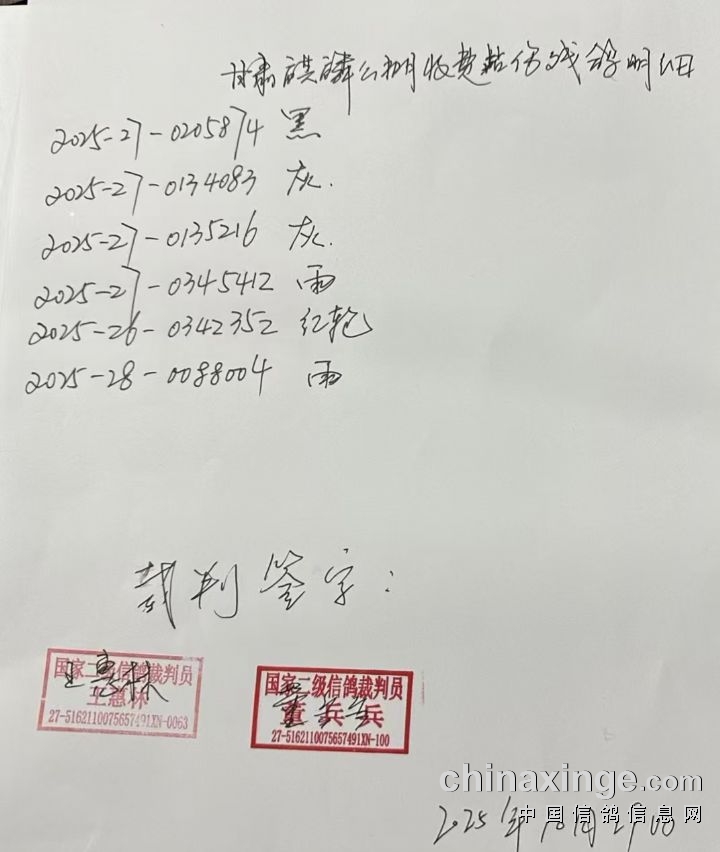 甘肃麒麟公棚收费站伤残鸽明细
2025-27-0205874 黑
2025-27-0134083 灰.
2025-27-0135216 灰.
2025-27-0345412 雨
2025-26-0342352 红轮
2025-28-0088004 雨
裁判签字:
国家二级信鸽裁判员
王惠林
27-5162110075657491XN-0063
国家二级信鸽裁判员
董兵兵
27-5162110075657491XN-100
chinaxinge.com
中国信鸽信息网
2025年10月29日